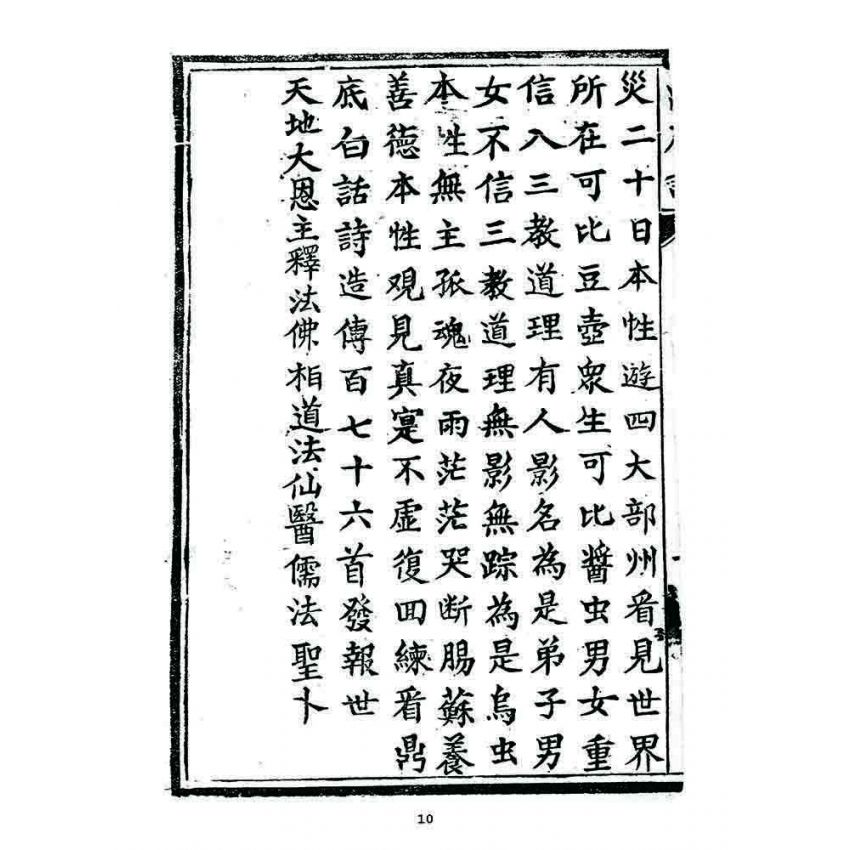 災二十日本性遊四大部州看見世界
所在可比豆壺衆生可比醬虫男女重
信入三教道理有人影名為是弟子男
女不信三教道理無影無踪為是烏虫
本性無主孤魂夜雨茫茫哭断腸蘇養
善德本性观見真寔不虛復回練看鼎
底白話詩造傳百七十六首發報世
天地大恩主釋法佛栢道法仙醫儒法聖卜
10